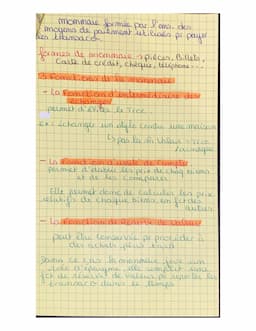 monnaie formée par l'ens. des
moyens de paiement utilisés pr payer
les transacs
formes de monnaie : pièces, billets,
carte de crédit, chèque, téléphone...
3 fonctions de la monnaie
+ La fonction d'intermédiaire des
échanges
permet d'éviter le troc
ex: échanger un stylo contre une maison
- La fonction d'unité de compte
permet d'établir les prix de chaq biens
et de les comparer
Elle permet donc de calculer les prix
relatifs de chaque biens en fct des
autres
- La fonction de réserve de valeur
peut être conservée pr procéder à
des achats plus tard
Dans ce cas la monnaie joue un
rôle d'épargne, elle remplit une
fct de réserve de valeur pr reporter les
transacs dans le temps